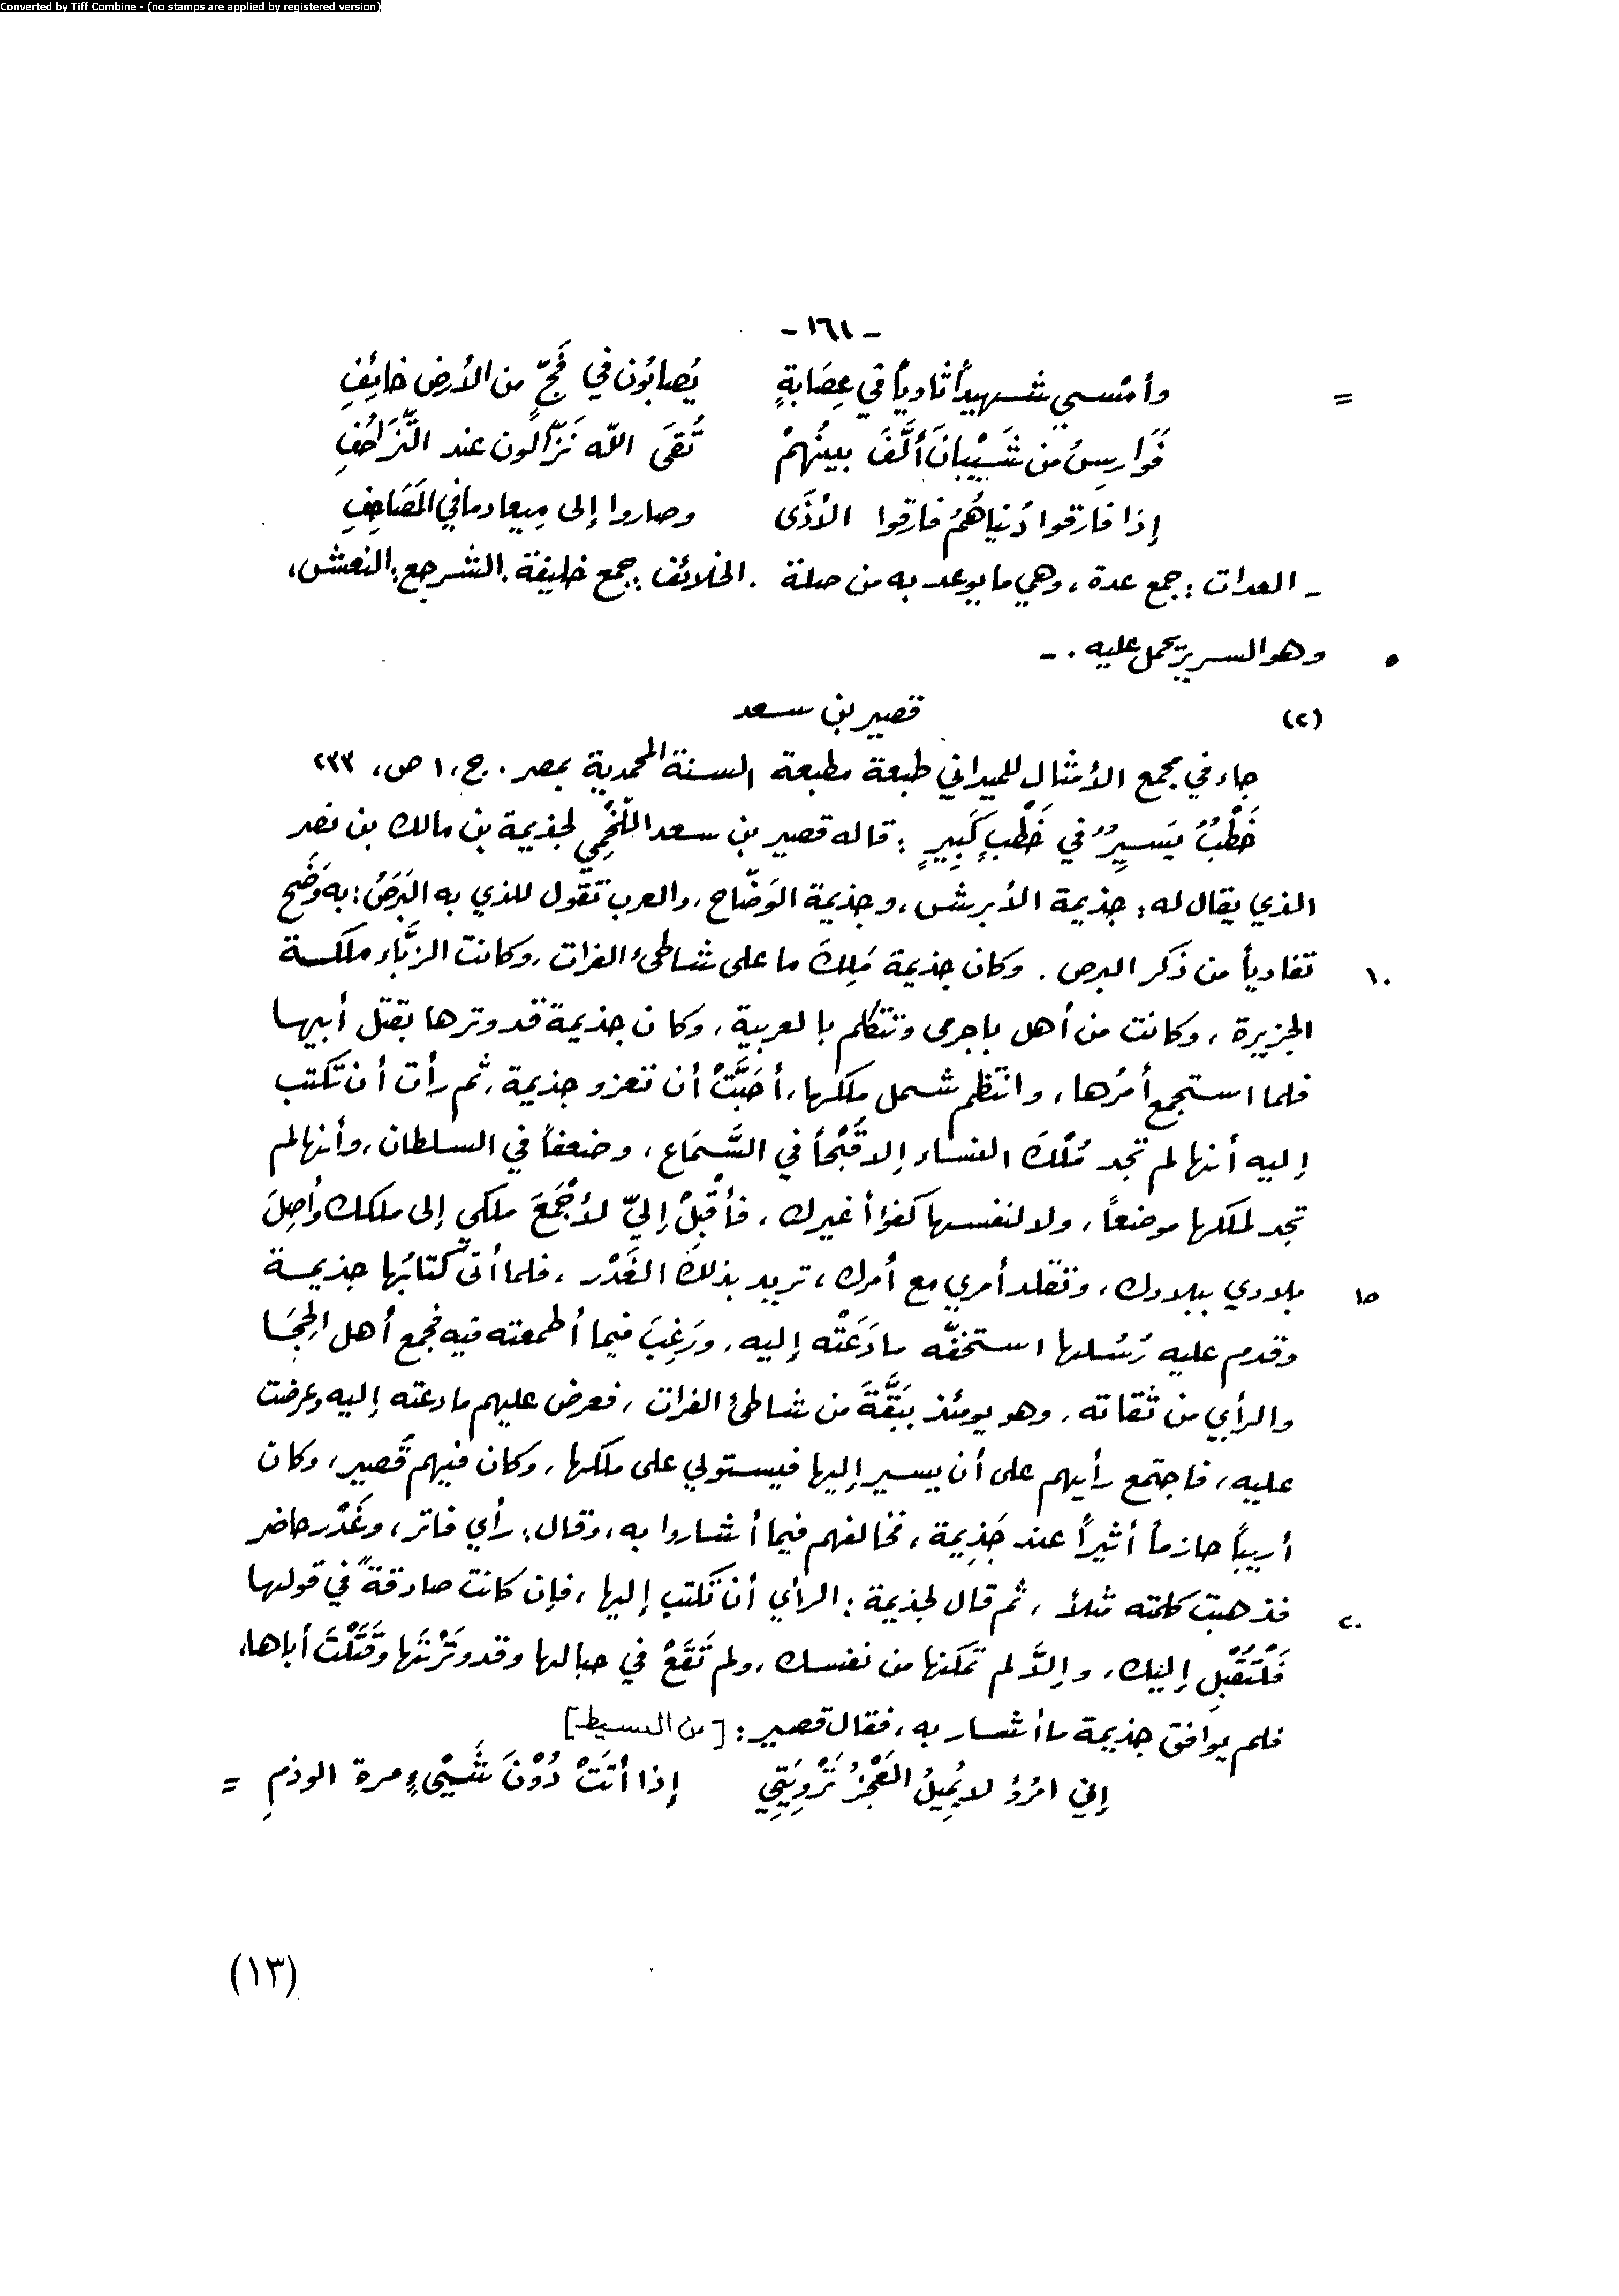 Converted by Tiff Combine - (no stamps are applied by registered version)
- ١٦١ -
= وأمْسي شهيداً ثاوياً في عِصَابةٍ يُصابُون في فَجٍّ من الأرض خائِفِ
فَوَارِسُ من شَيْبانَ ألَّفَ بينهُمْ تُقَى الله نَزّالون عند التَّزَاحُفِ
إذا فارقوا دُنياهُمُ فارقوا الأذَى وصاروا إلى مِيعاد ما في المَصَاحِفِ
- العدات : جمع عدة ، وهي ما يوعد به من صلة . الخلائف : جمع خليفة . الشرجع : النعش ،
٥ وهو السرير يحمل عليه . -
(٢) قصير بن سعد
جاء في مجمع الأمثال للميداني طبعة مطبعة السنة المحمدية بمصر . ج ، ١ ص ، ٢٣٣
خَطْبٌ يَسِيرٌ في خَطْبٍ كَبِيرٍ : قاله قصير بن سعد اللّخْمِي لجذيمة بن مالك بن نصر
الذي يقال له : جذيمة الأبرش ، وجذيمة الوَضّاح ، والعرب تقول للذي به البَرَصُ : به وَضَح
١٠ تفادياً من ذكر البرص . وكان جذيمة مَلِكَ ما على شاطئ الفرات ، وكانت الزَّبَّاء ملكـة
الجزيرة ، وكانت من أهل باجرمى وتتكلم بالعربية ، وكان جذيمة قد وترها بقتل أبيها
فلما استجمع أمرُها ، وانتظم شمل ملكها ، أحَبَّتْ أن تغزو جذيمة ، ثم رأت أن تكتب
إليه أنها لم تجد مُلْكَ النساء إلا قُبْحاً في السَّمَاع ، وضعفاً في السلطان ، وأنها لم
تجد لملكها موضعاً ، ولا لنفسها كفؤاً غيرك ، فأقْبِلْ إليّ لأجْمَعَ ملكي إلى ملكك وأصِلَ
١٥ بلادي ببلادك ، وتقلد أمري مع أمرك ، تريد بذلك الغَدْر ، فلما أتى كتابُها جذيمـة
وقدم عليه رُسُلها استخفّه ما دَعَتْه إليه ، ورَغِبَ فيما أطمعته فيه فجمع أهل الحِجَا
والرأي من ثقاته ، وهو يومئذ ببَقَّةَ من شاطئ الفرات ، فعرض عليهم ما دعته إليه وعرضت
عليه ، فاجتمع رأيهم على أن يسير إليها فيستولي على ملكها ، وكان فيهم قَصير ، وكان
أريباً حازماً أثيراً عند جَذِيمة ، فخالفهم فيما أشاروا به ، وقال : رأي فاتر ، وغَدْر حاضر
٢٠ فذهبت كلمته مثلاً ، ثم قال لجذيمة : الرأي أن تكتب إليها ، فإن كانت صادقةً في قولها
فَلْتُقْبِل إليك ، وإلاَّ لم تمكنها من نفسك ، ولم تَقَعْ في حبالها وقد وتَرْتَها وقَتَلْتَ أباها ،
فلم يوافق جذيمة ما أشار به ، فقال قصير : [ من البسيط ]
إني امرُؤ لا يُمِيلُ العَجْزُ تَرْوِيَتِي إذا أتَتْ دُوْنَ شَيْىءٍ مرة الوذمِ =
(١٣)